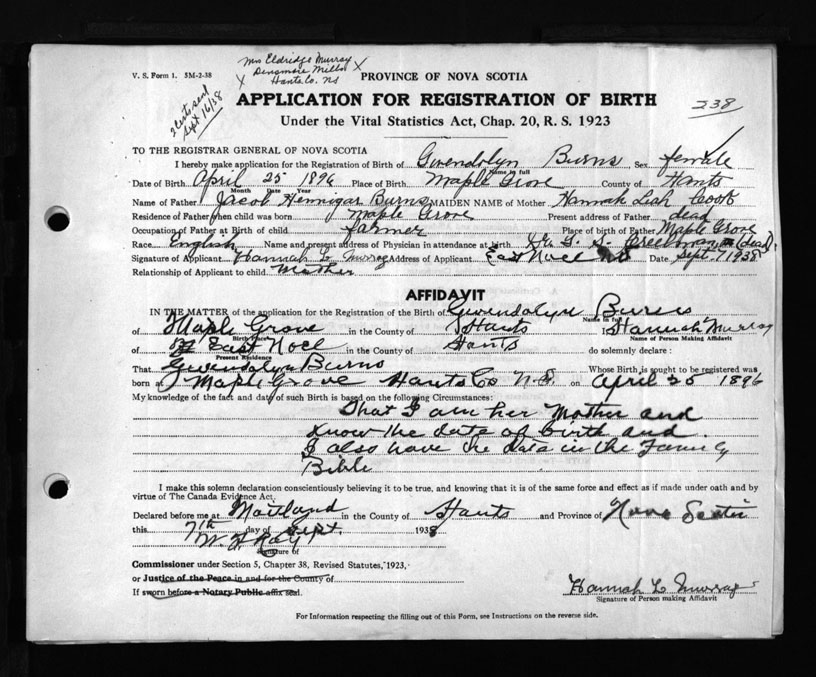 Mrs Eldridge Murray
V. S. Form 1. 5M-2-38
Densmore Mills
Hants Co. NS
PROVINCE OF NOVA SCOTIA
Sept 16/38
APPLICATION FOR REGISTRATION OF BIRTH
238
Under the Vital Statistics Act, Chap. 20, R. S. 1923
TO THE REGISTRAR GENERAL OF NOVA SCOTIA
I hereby make application for the Registration of Birth of Gwendolyn Burns Sex female
Name in full
Date of Birth April 25 1896 Place of Birth Maple Grove County of Hants
Month Date Year
Name of Father Jacob Hennigar Burns MAIDEN NAME of Mother Hannah Liah
Residence of Father when child was born Maple Grove Present address of Father dead
Occupation of Father at Birth of child farmer Place of birth of Father Maple Grove
Race English Name and present address of Physician in attendance at birth Creelman (dead)
Signature of Applicant Hannah L. Murray Address of Applicant East Noel NS Date Sept. 7 1938
Relationship of Applicant to child Mother
AFFIDAVIT
IN THE MATTER of the application for the Registration of the Birth of Gwendolyn Burns
Name in full
of Maple Grove in the County of Hants I Hannah Murray
Birth Place
Name of Person Making Affidavit
of East Noel in the County of Hants do solemnly declare :
Present Residence
That Gwendolyn Burns Whose Birth is sought to be registered was
born at Maple Grove Hants Co N.S. on April 25 1896
My knowledge of the fact and date of such Birth is based on the following Circumstances:
That I am her Mother and
know the date of birth and
I also have the data in the Family
Bible
I make this solemn declaration conscientiously believing it to be true, and knowing that it is of the same force and effect as if made under oath and by
virtue of The Canada Evidence Act.
Declared before me at Maitland in the County of Hants and Province of Nova Scotia
this 7th day of Sept. 1938
W. F. Roy
Signature of
Commissioner under Section 5, Chapter 38, Revised Statutes, 1923,
or Justice of the Peace in and for the County of
If sworn before a Notary Public affix seal.
Hannah L Murray
Signature of Person making Affidavit
For Information respecting the filling out of this Form, see Instructions on the reverse side.